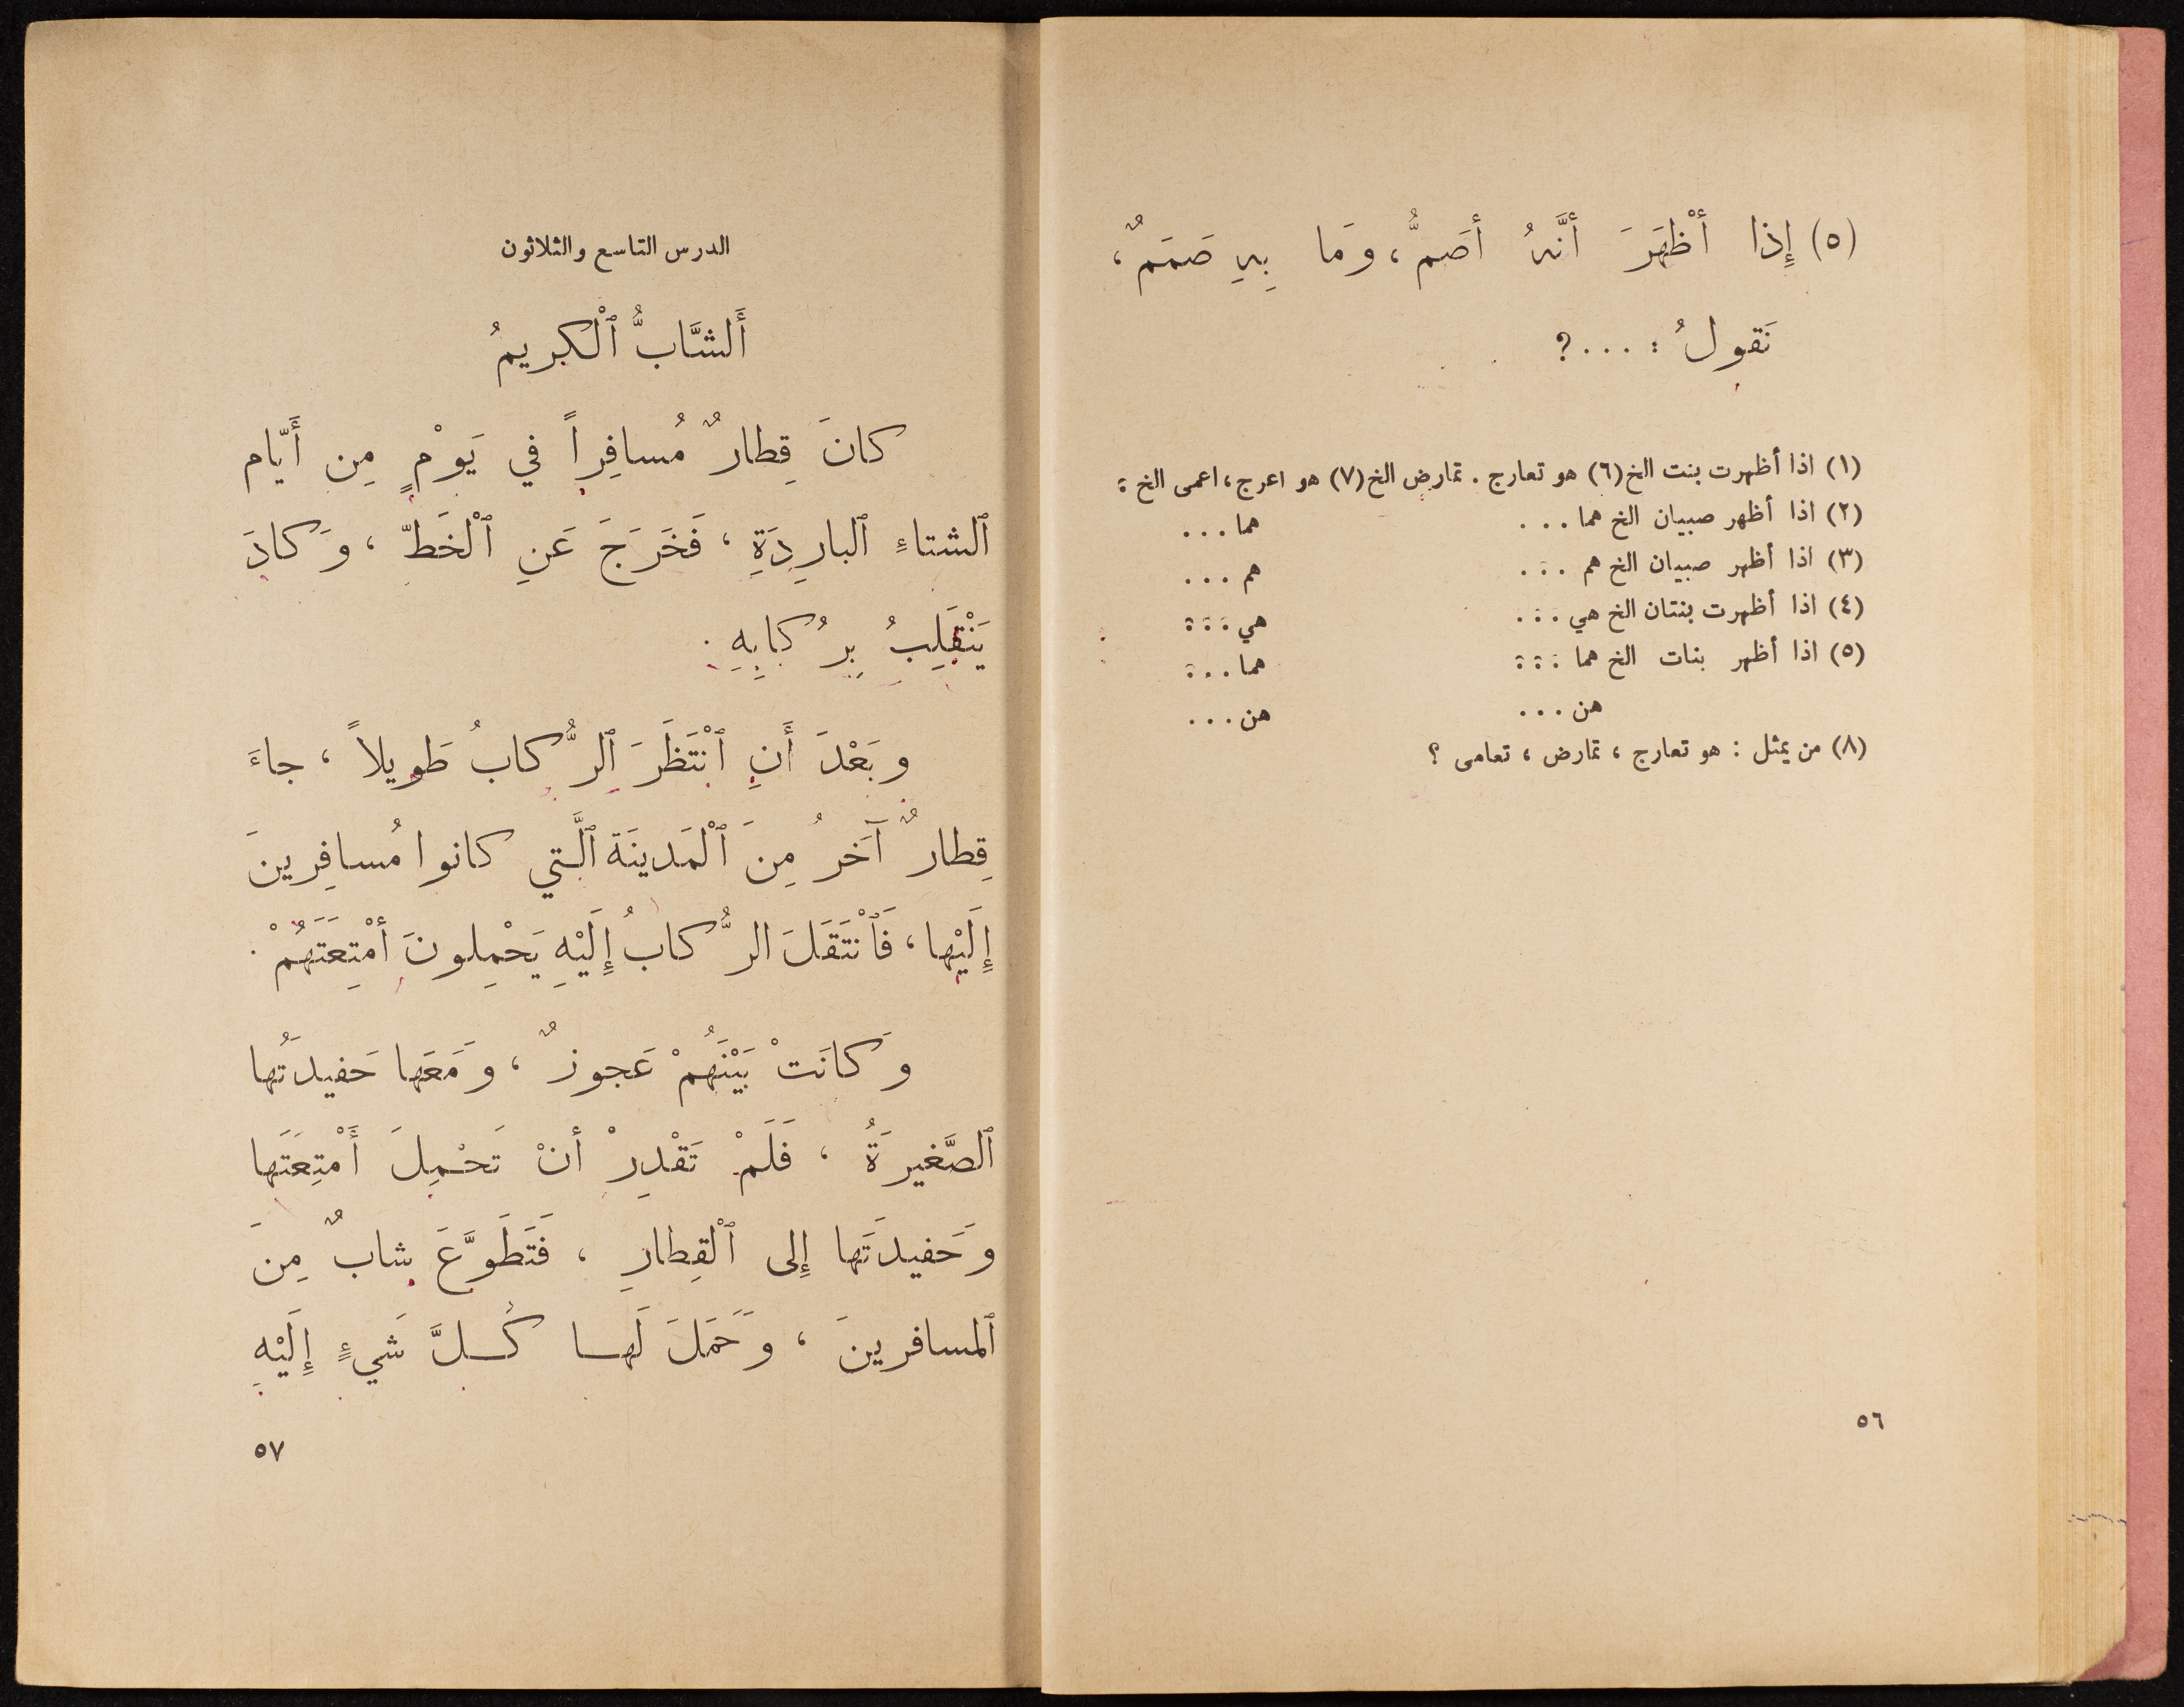 (٥) إِذا أَظْهَرَ أَنَّهُ أَصَمُّ، وَما بِهِ صَمَمٌ،
نَقولُ : . . . ?
(١) اذا أظهرت بنت الخ (٦) هو تعارج . تمارض الخ (٧) هو اعرج، اعمى الخ :
(٢) اذا أظهر صبيان الخ هما . . . هما . . .
(٣) اذا أظهر صبيان الخ هم . . . هم . . .
(٤) اذا أظهرت بنتان الخ هي . . . هي . . :
(٥) اذا أظهر بنات الخ هما : : : هما . . :
هن . . . هن . . .
(٨) من يمثل : هو تعارج ، تمارض ، تعامى ؟
٥٦
الدرس التاسع والثلاثون
أَلشَّابُّ ٱلْكَريمُ
كانَ قِطارٌ مُسافِراً في يَوْمٍ مِن أَيّام
ٱلشتاءِ ٱلبارِدَةِ ، فَخَرَجَ عَنِ ٱلْخَطّ ، وَكادَ
يَنْقَلِبُ بِرُكابِهِ .
وبَعْدَ أَنِ ٱنْتَظَرَ ٱلرُّكابُ طَويلاً ، جاءَ
قِطارٌ آخَرُ مِنَ ٱلْمَدينَة ٱلَّتي كانوا مُسافِرينَ
إِلَيْها ، فَٱنْتَقَلَ الرُّكابُ إِلَيْهِ يَحْمِلونَ أَمْتِعَتَهُمْ .
وَكانَتْ بَيْنَهُمْ عَجوزٌ ، وَمَعَها حَفيدَتُها
ٱلصَّغيرَةُ ، فَلَمْ تَقْدِرْ أنْ تَحْمِلَ أَمْتِعَتَها
وَحَفيدَتَها إِلى ٱلْقِطارِ ، فَتَطَوَّعَ شابٌ مِنَ
ٱلمسافرينَ ، وَحَمَلَ لَها كُلَّ شَيءٍ إِلَيْهِ
٥٧